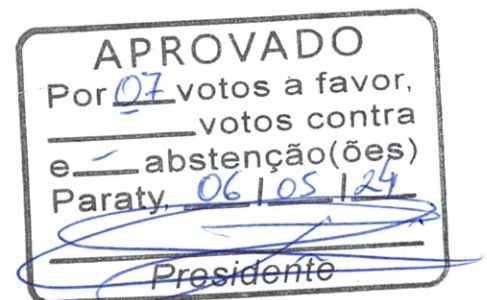 APROVADO
Por 07 votos a favor,
____ votos contra
e - abstenção(ões)
Paraty, 06 / 05 / 24
Presidente